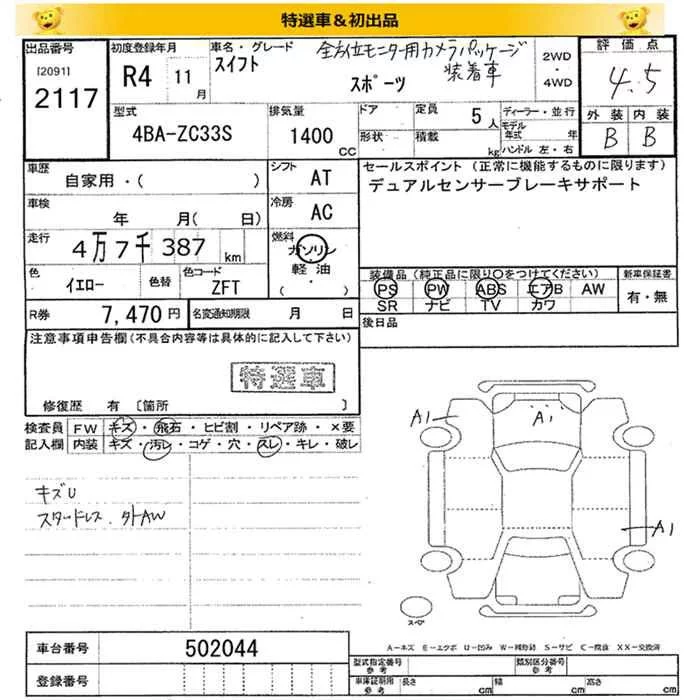 特選車&初出品
出品番号 初度登録年月 車名・グレード 全方位モニター用カメラパッケージ装着車 2WD・4WD 評価点
[2091]
2117 R4 11月 スイフト スポーツ 4.5
型式 排気量 ドア 定員 5人 ディーラー・並行 外装 内装
4BA-ZC33S 1400CC 形状 積載 kg モデル年式 年 B B
ハンドル 左・右
車歴 シフト セールスポイント (正常に機能するものに限ります)
自家用・( ) AT デュアルセンサーブレーキサポート
車検 冷房
年 月( 日) AC
走行 燃料
4万7千387km ガソリン・軽油・( )
色 色替 色コード 装備品 (純正品に限り○をつけてください) 新車保証書
イエロー ZFT PS PW ABS エアB AW 有・無
SR ナビ TV カワ
R券 7,470円 名変通知期限 月 日 後日品
注意事項申告欄(不具合内容等は具体的に記入して下さい)
特選車
修復歴 有 〔箇所 〕
検査員 FW キズ・飛石・ヒビ割・リペア跡・×要
記入欄 内装 キズ・汚レ・コゲ・穴・スレ・キレ・破レ
キズU
スタッドレス.夕トAW
A1
A1
A1
スペア
車台番号 502044
登録番号
A-キズ E-エクボ U-凹み W-補修跡 S-サビ C-腐食 XX-交換済
型式指定番号 参考 類別区分番号 参考
車庫証明用 参考 長さ cm 幅 cm 高さ cm